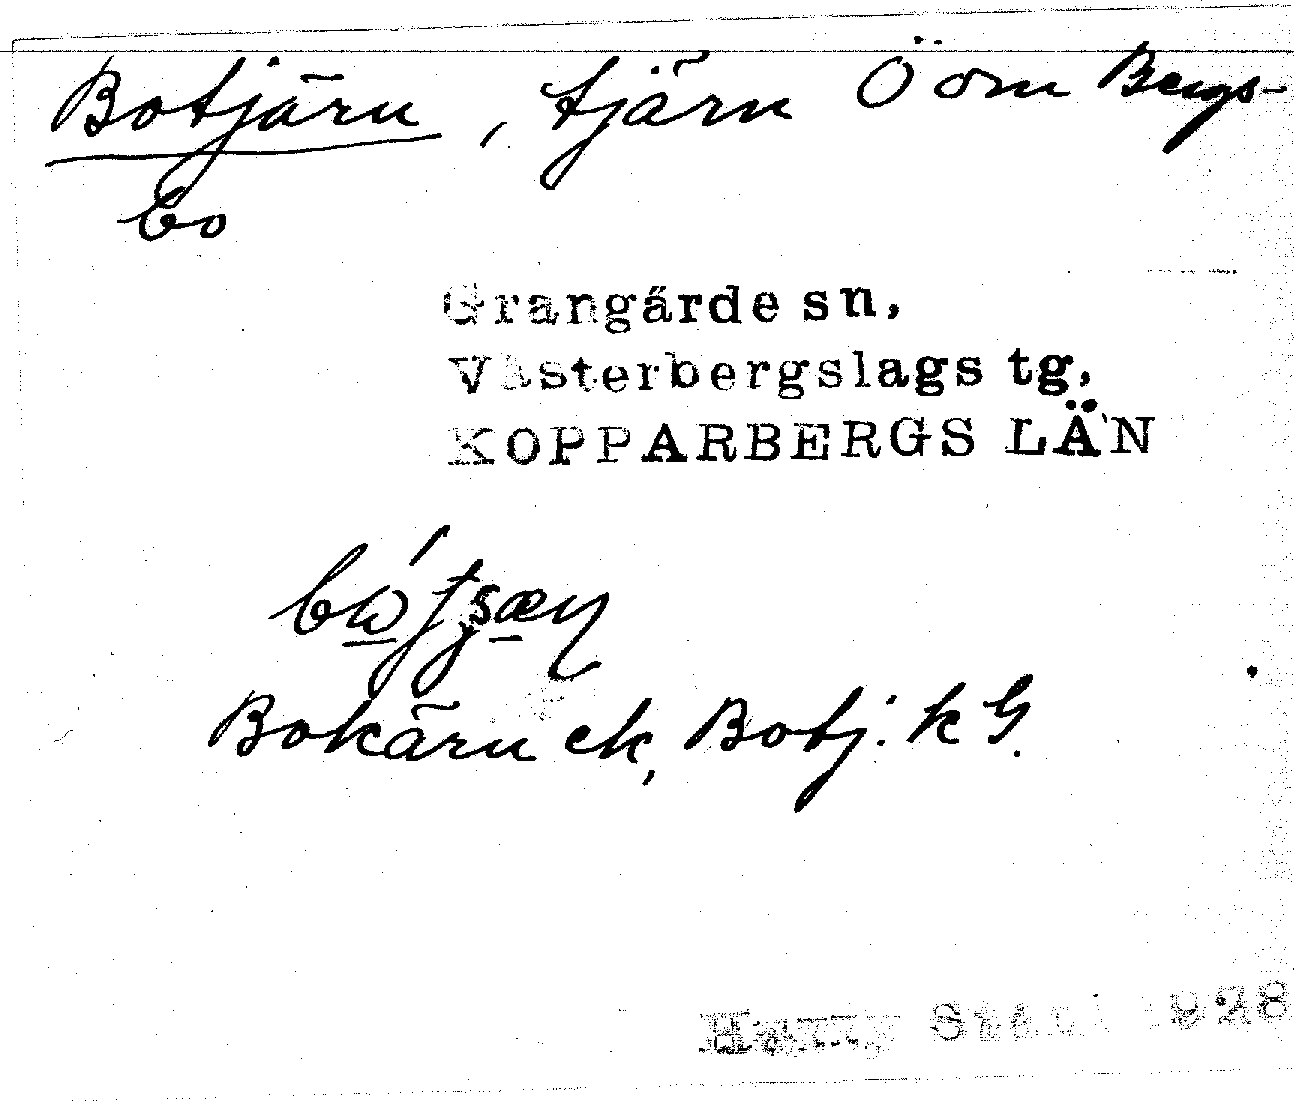 Botjärn, tjärn Ö om Bergs-
bo
Grangärde sn,
Västerbergslags tg,
KOPPARBERGS LÄN
Bokärn ek, Botj: k G.
Harry Ståhl 1928